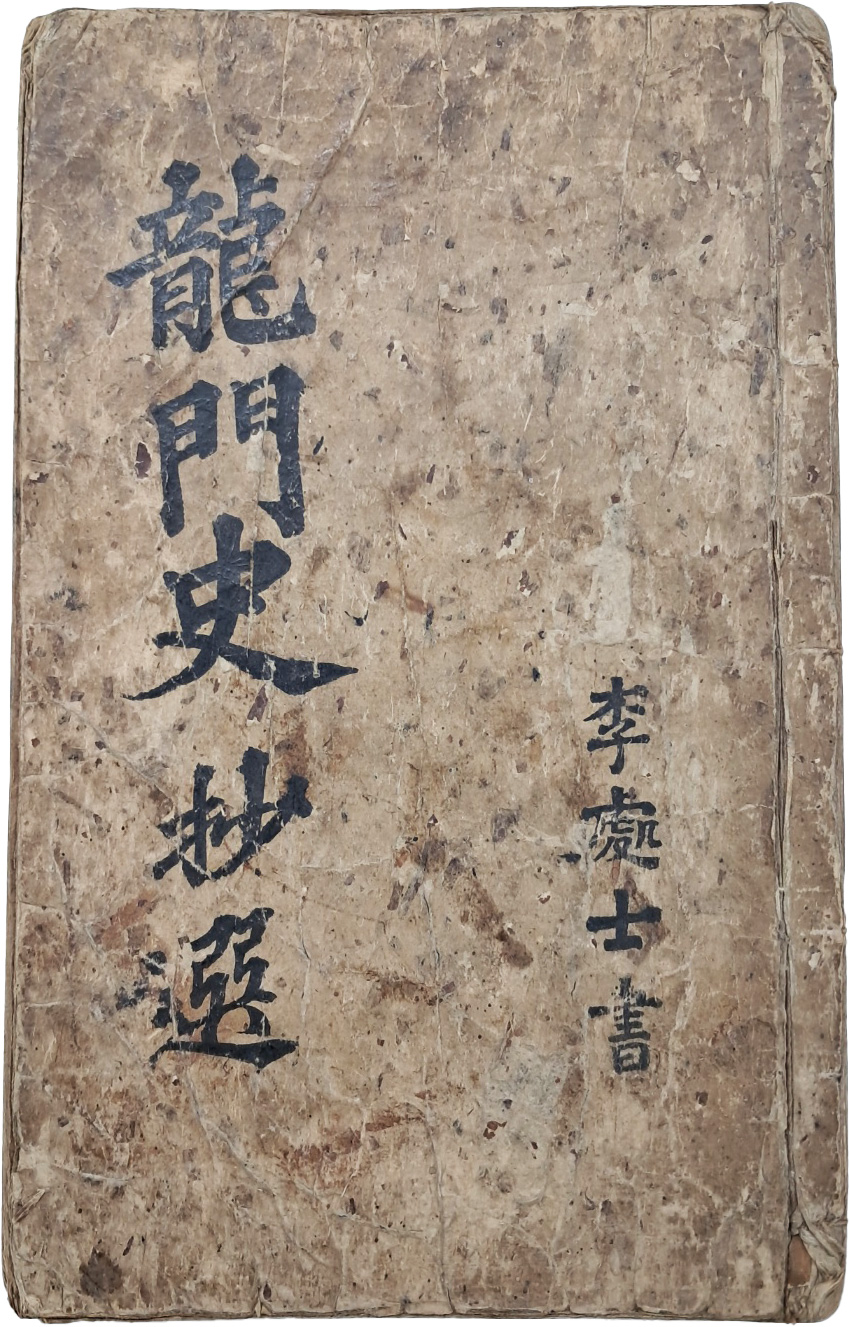 李處士書
龍門史抄選